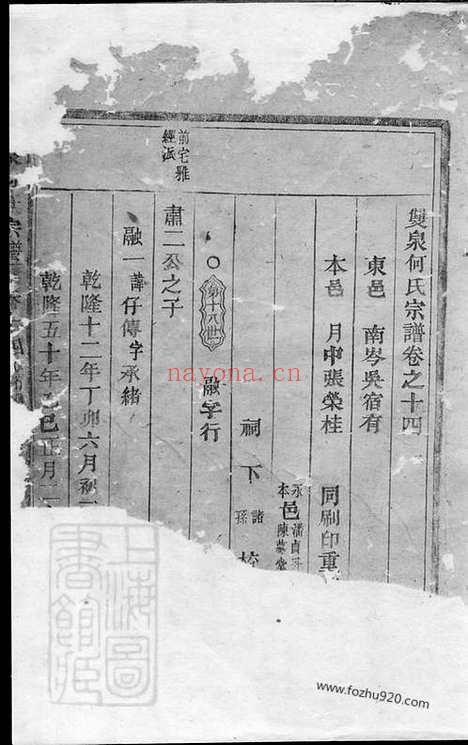 雙泉何氏宗譜卷之十四
東邑　南岑吳宿有
本邑　月中張榮桂　同刷印重
永潘貞
本邑陳
祠下諸孫校
○第十八世　融字行
前宅雅
經派
肅二公之子
融一 壽仔傳字承緒
乾隆十二年丁卯六月初
乾隆五十年乙巳正月二
宗譜
上海圖書館藏
nayona.cn
www.fozhu920.com